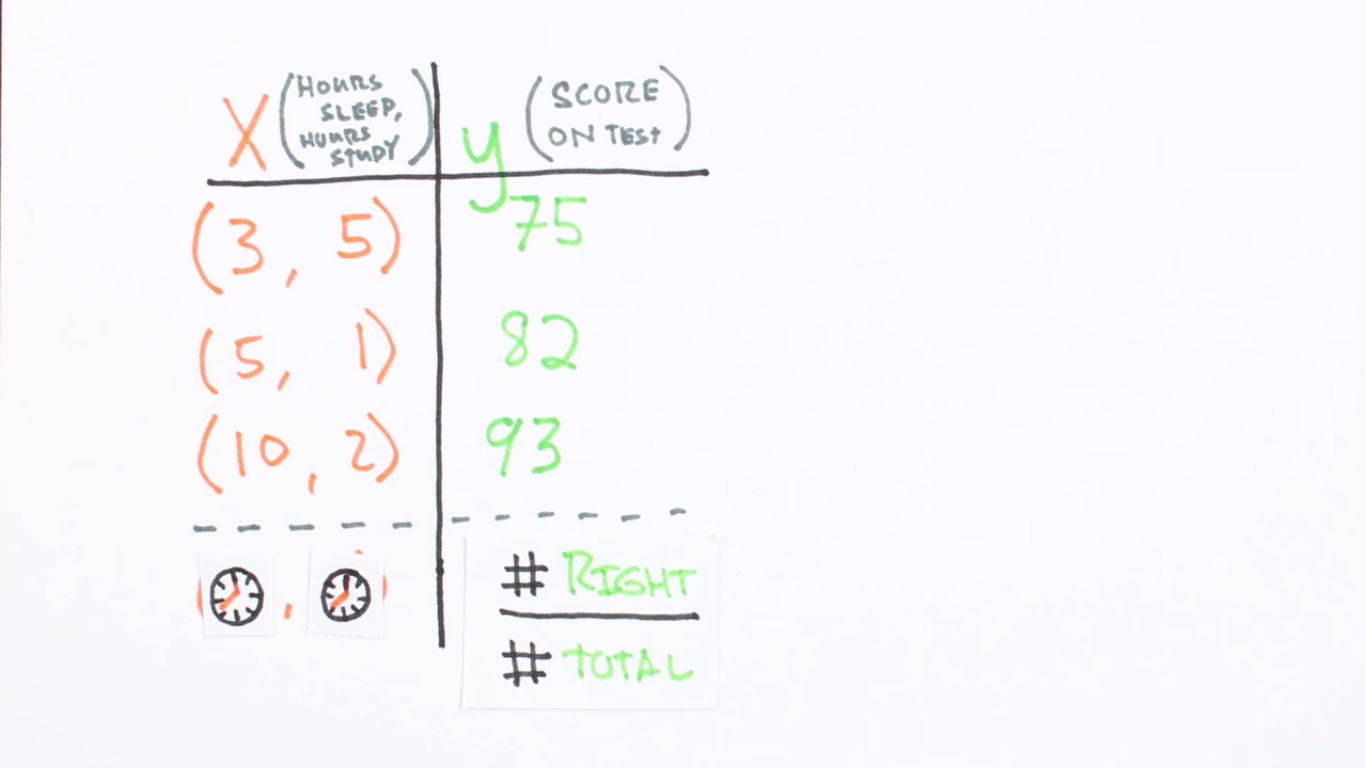 X (HOURS
SLEEP,
HOURS
STUDY)
y (SCORE
ON TEST)
(3, 5) 75
(5, 1) 82
(10, 2) 93
# RIGHT
# TOTAL